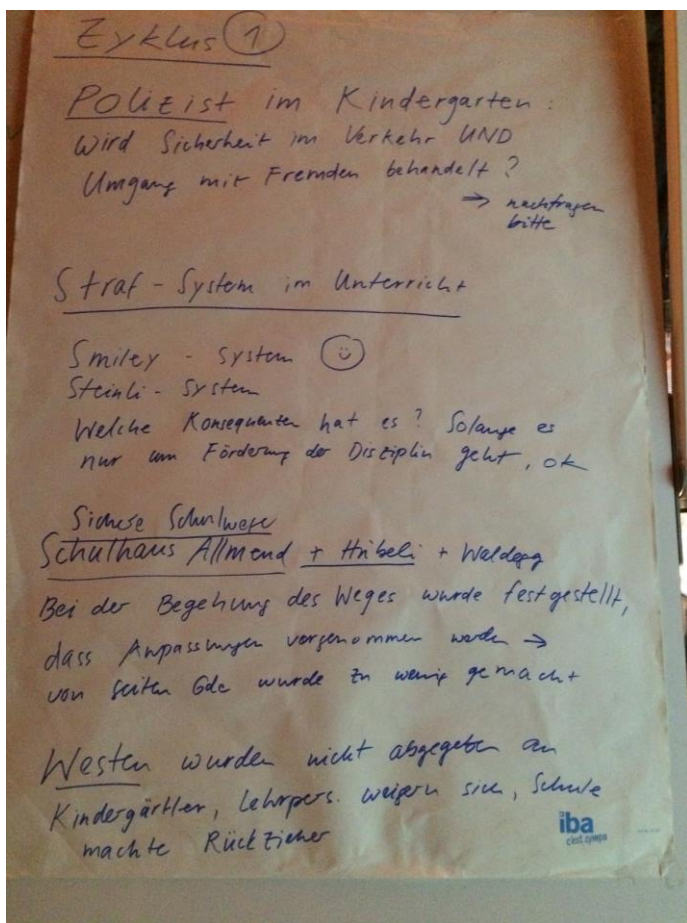 Zyklus 1
Polizist im Kindergarten:
Wird Sicherheit im Verkehr UND
Umgang mit Fremden behandelt?
→ nachfragen
bitte
Straf-System im Unterricht
Smiley - System
Steinli - System
Welche Konsequenzen hat es? Solange es
nur um Förderung der Disziplin geht, ok
Sichere Schulwege
Schulhaus Allmend + Hübeli + Waldegg
Bei der Begehung des Weges wurde festgestellt,
dass Anpassungen vorgenommen werden →
von seiten Gde wurde zu wenig gemacht
Westen wurden nicht abgegeben an
Kindergärtler, Lehrpers. weigern sich, Schule
machte Rückzieher
iba
c'est sympa